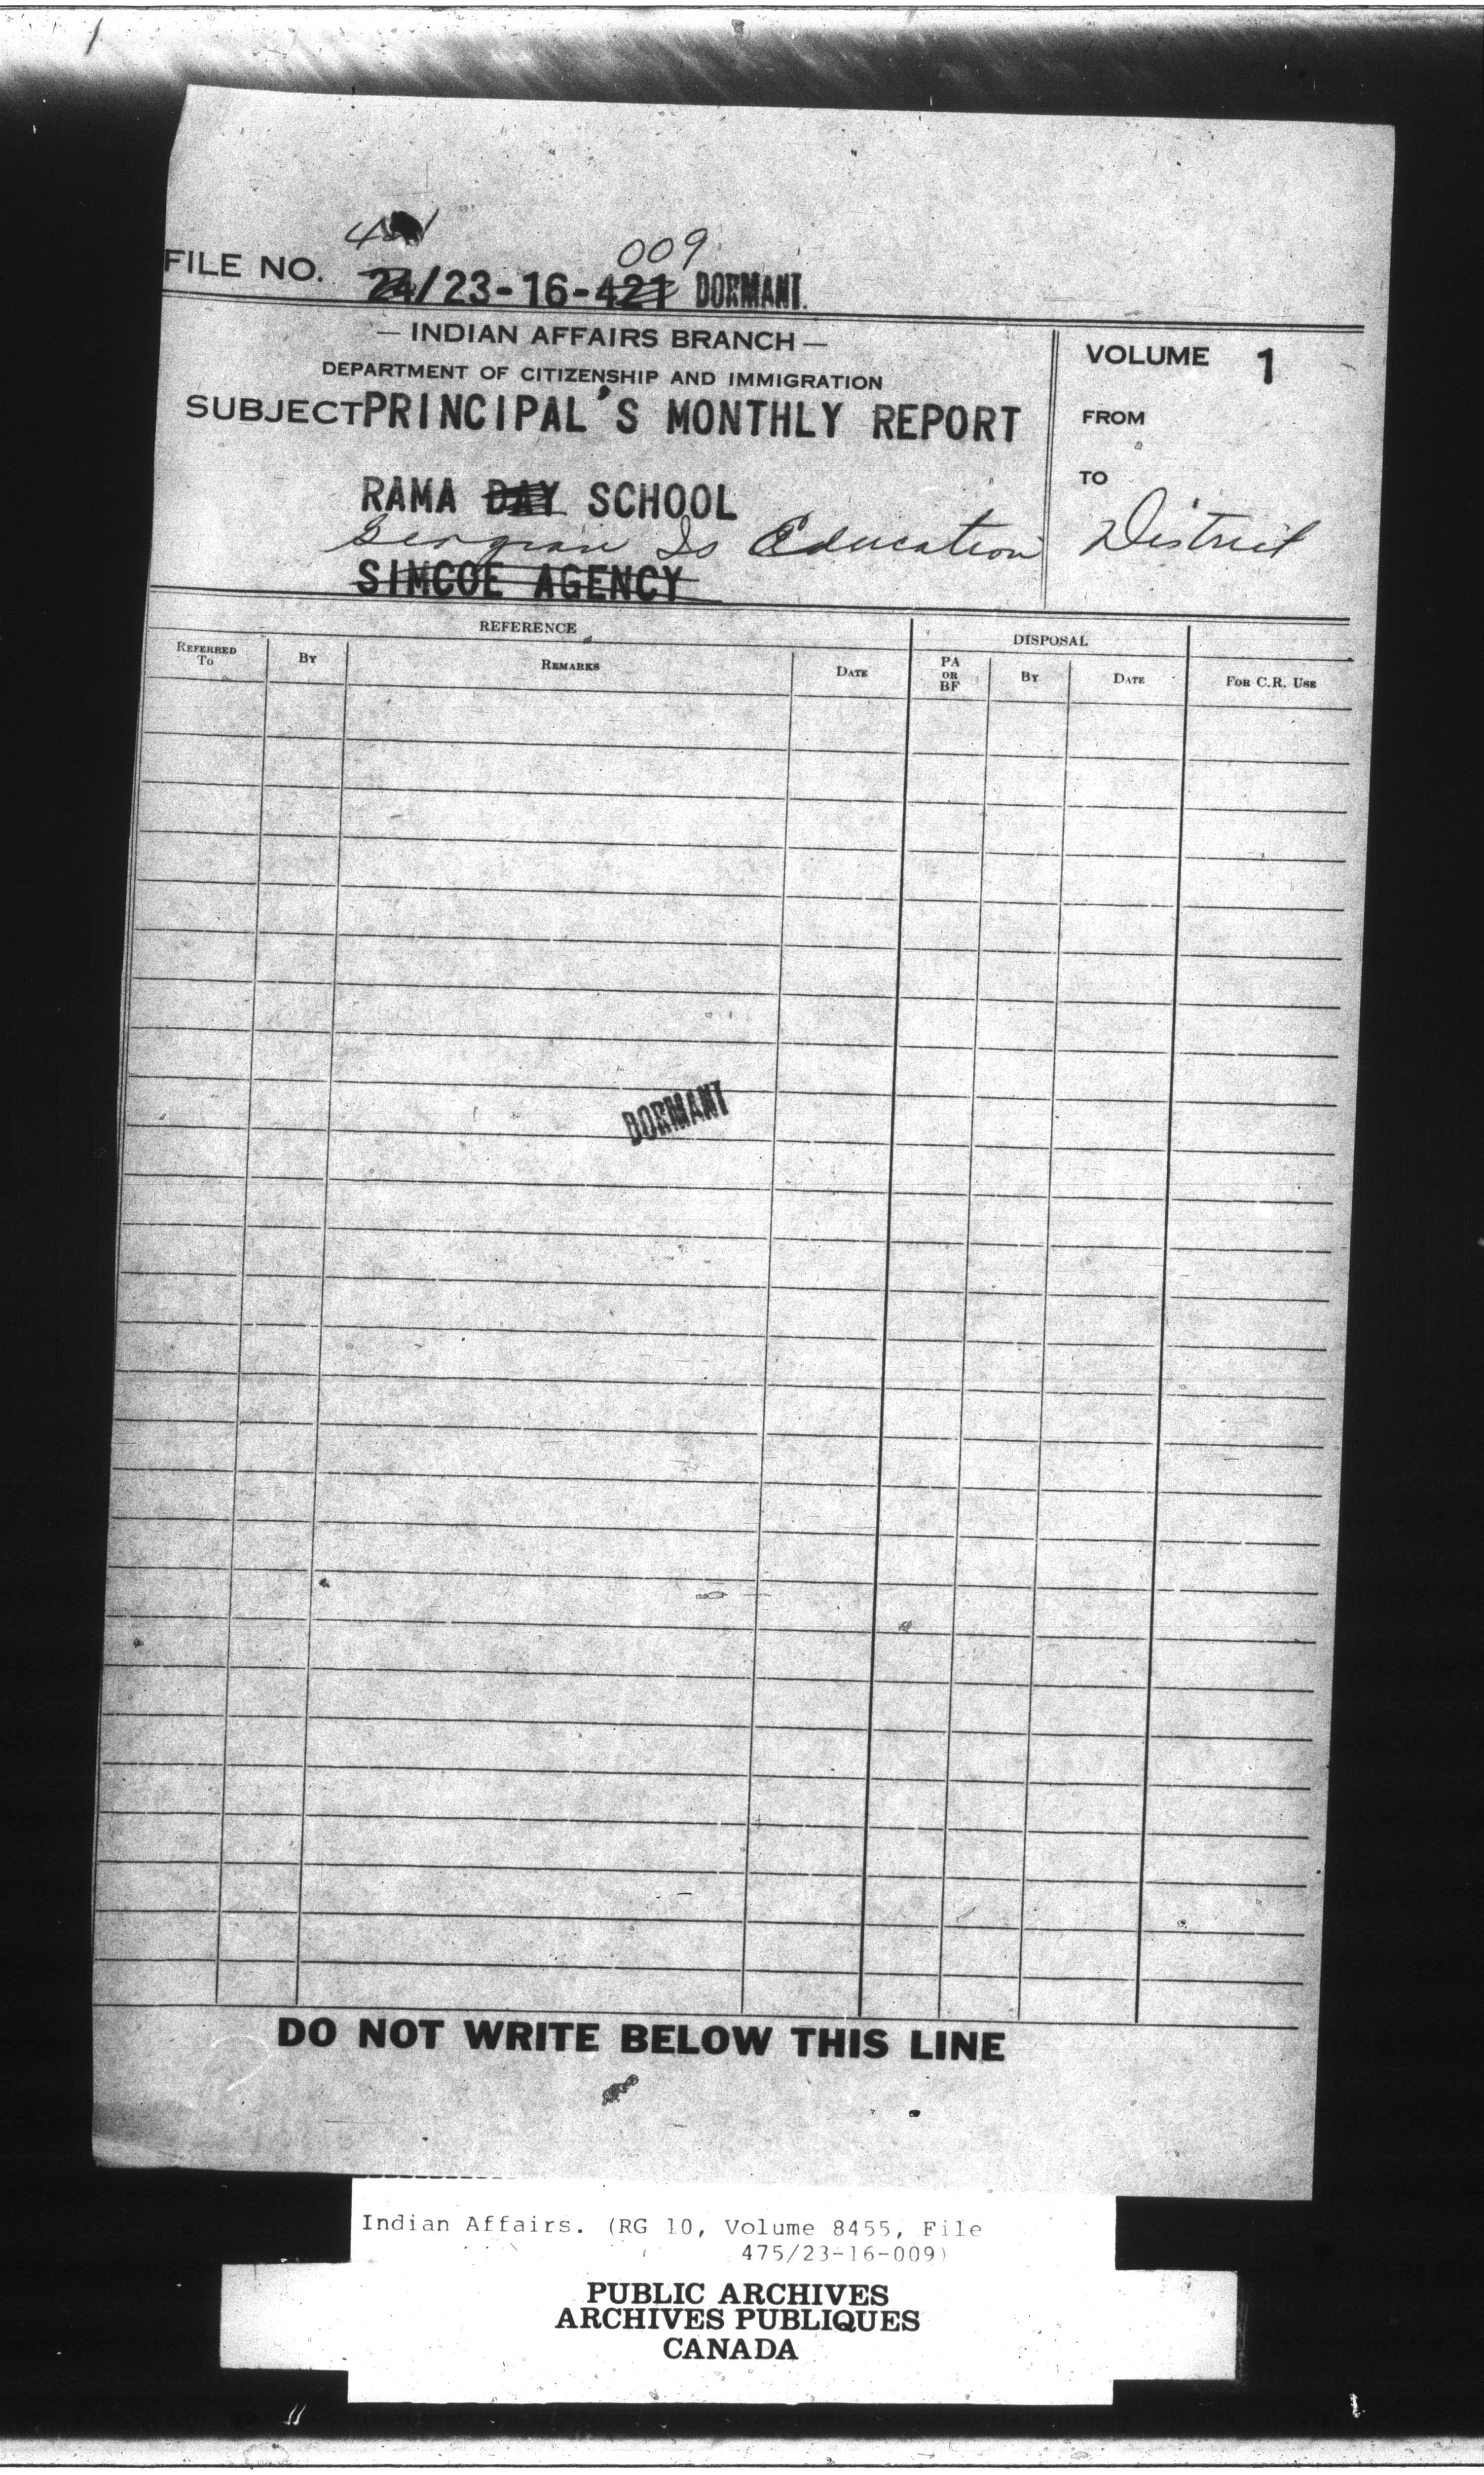 009
FILE NO. 24/23-16-421 DORMANT.
— INDIAN AFFAIRS BRANCH —
DEPARTMENT OF CITIZENSHIP AND IMMIGRATION
SUBJECT PRINCIPAL'S MONTHLY REPORT
RAMA DAY SCHOOL
Georgian Is Education District
SIMCOE AGENCY
VOLUME 1
FROM
TO
REFERENCE
DISPOSAL
REFERRED TO
BY
REMARKS
DATE
PA OR BF
BY
DATE
FOR C.R. USE
DORMANT
DO NOT WRITE BELOW THIS LINE
Indian Affairs. (RG 10, Volume 8455, File
475/23-16-009)
PUBLIC ARCHIVES
ARCHIVES PUBLIQUES
CANADA